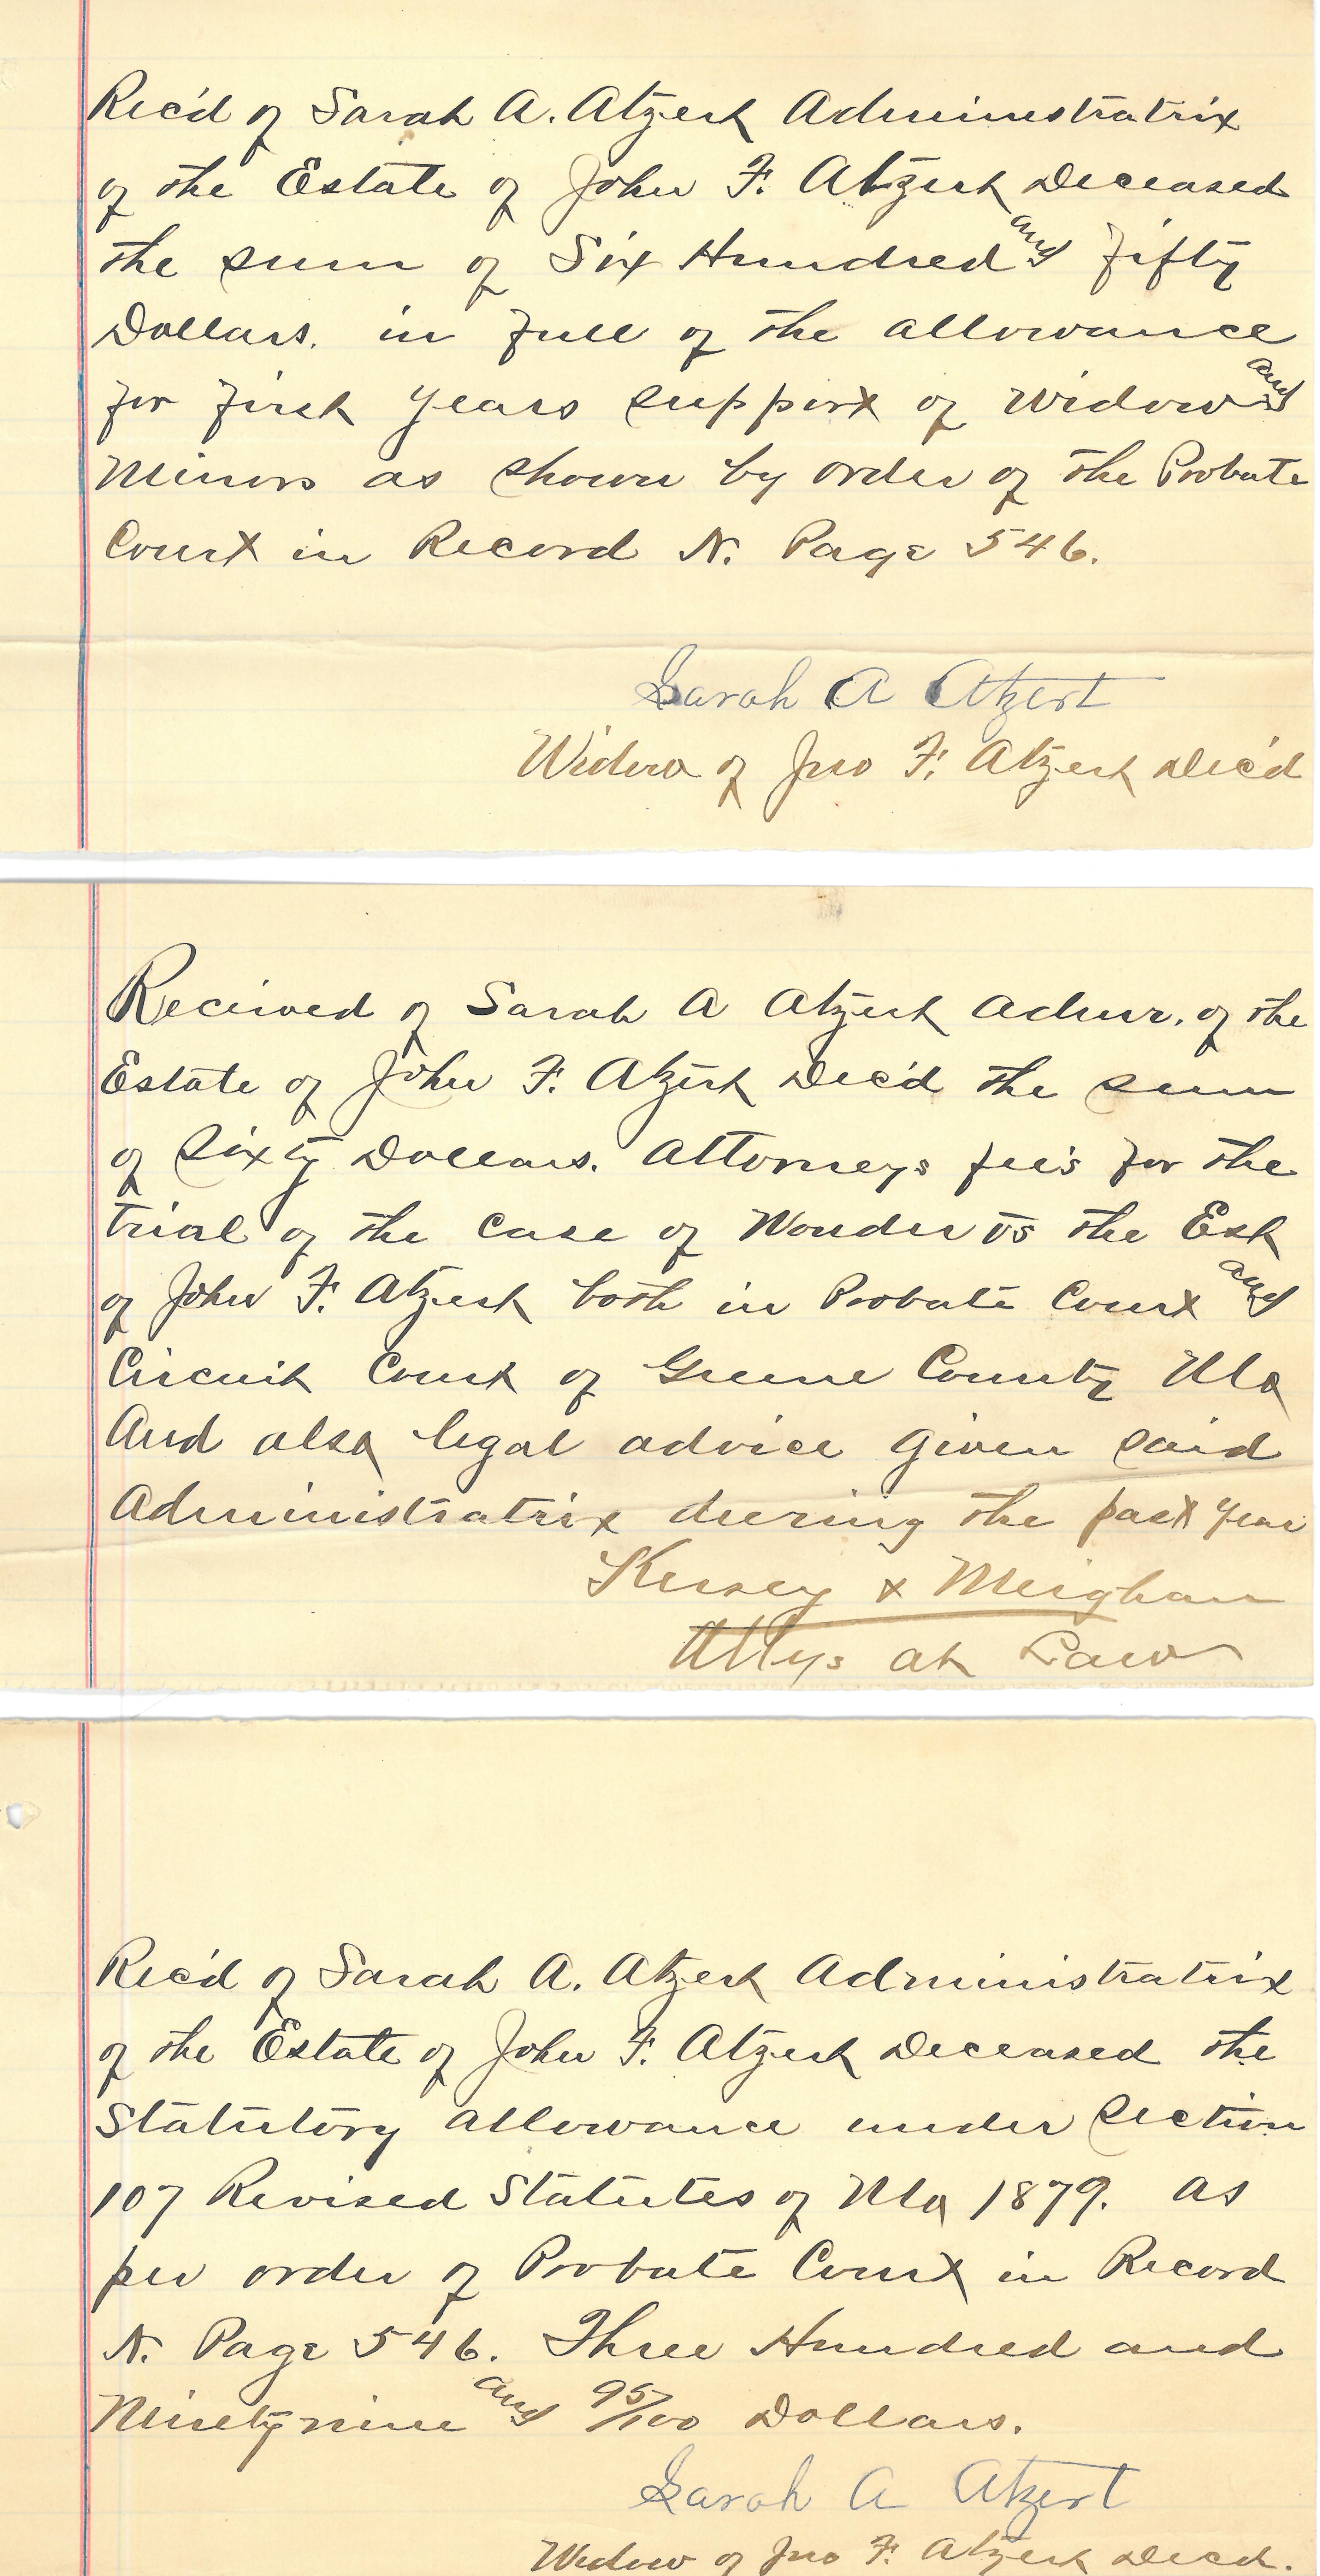 Rec'd of Sarah A. Atzert Administratrix
of the Estate of John F. Atzert Deceased
the sum of Six Hundred and Fifty
Dollars. in full of the allowance
for first years support of Widow and
Minors as shown by order of the Probate
Court in Record N. Page 546.
Sarah A Atzert
Widow of Jno F. Atzert Dec'd
Received of Sarah A Atzert Admr. of the
Estate of John F. Atzert Dec'd the sum
of Sixty Dollars. Attorneys fee's for the
trial of the case of Wonder vs the Est
of John F. Atzert both in Probate Court and
Circuit Court of Greene County Mo
And also legal advice given said
Administratrix during the past year
Kersey & Meighan
Attys at Law
Rec'd of Sarah A. Atzert Administratrix
of the Estate of John F. Atzert Deceased the
Statutory allowance under Section
107 Revised Statutes of Mo 1879. as
per order of Probate Court in Record
N. Page 546. Three Hundred and
Ninety nine and 95/100 Dollars.
Sarah A Atzert
Widow of Jno F. Atzert Decd.